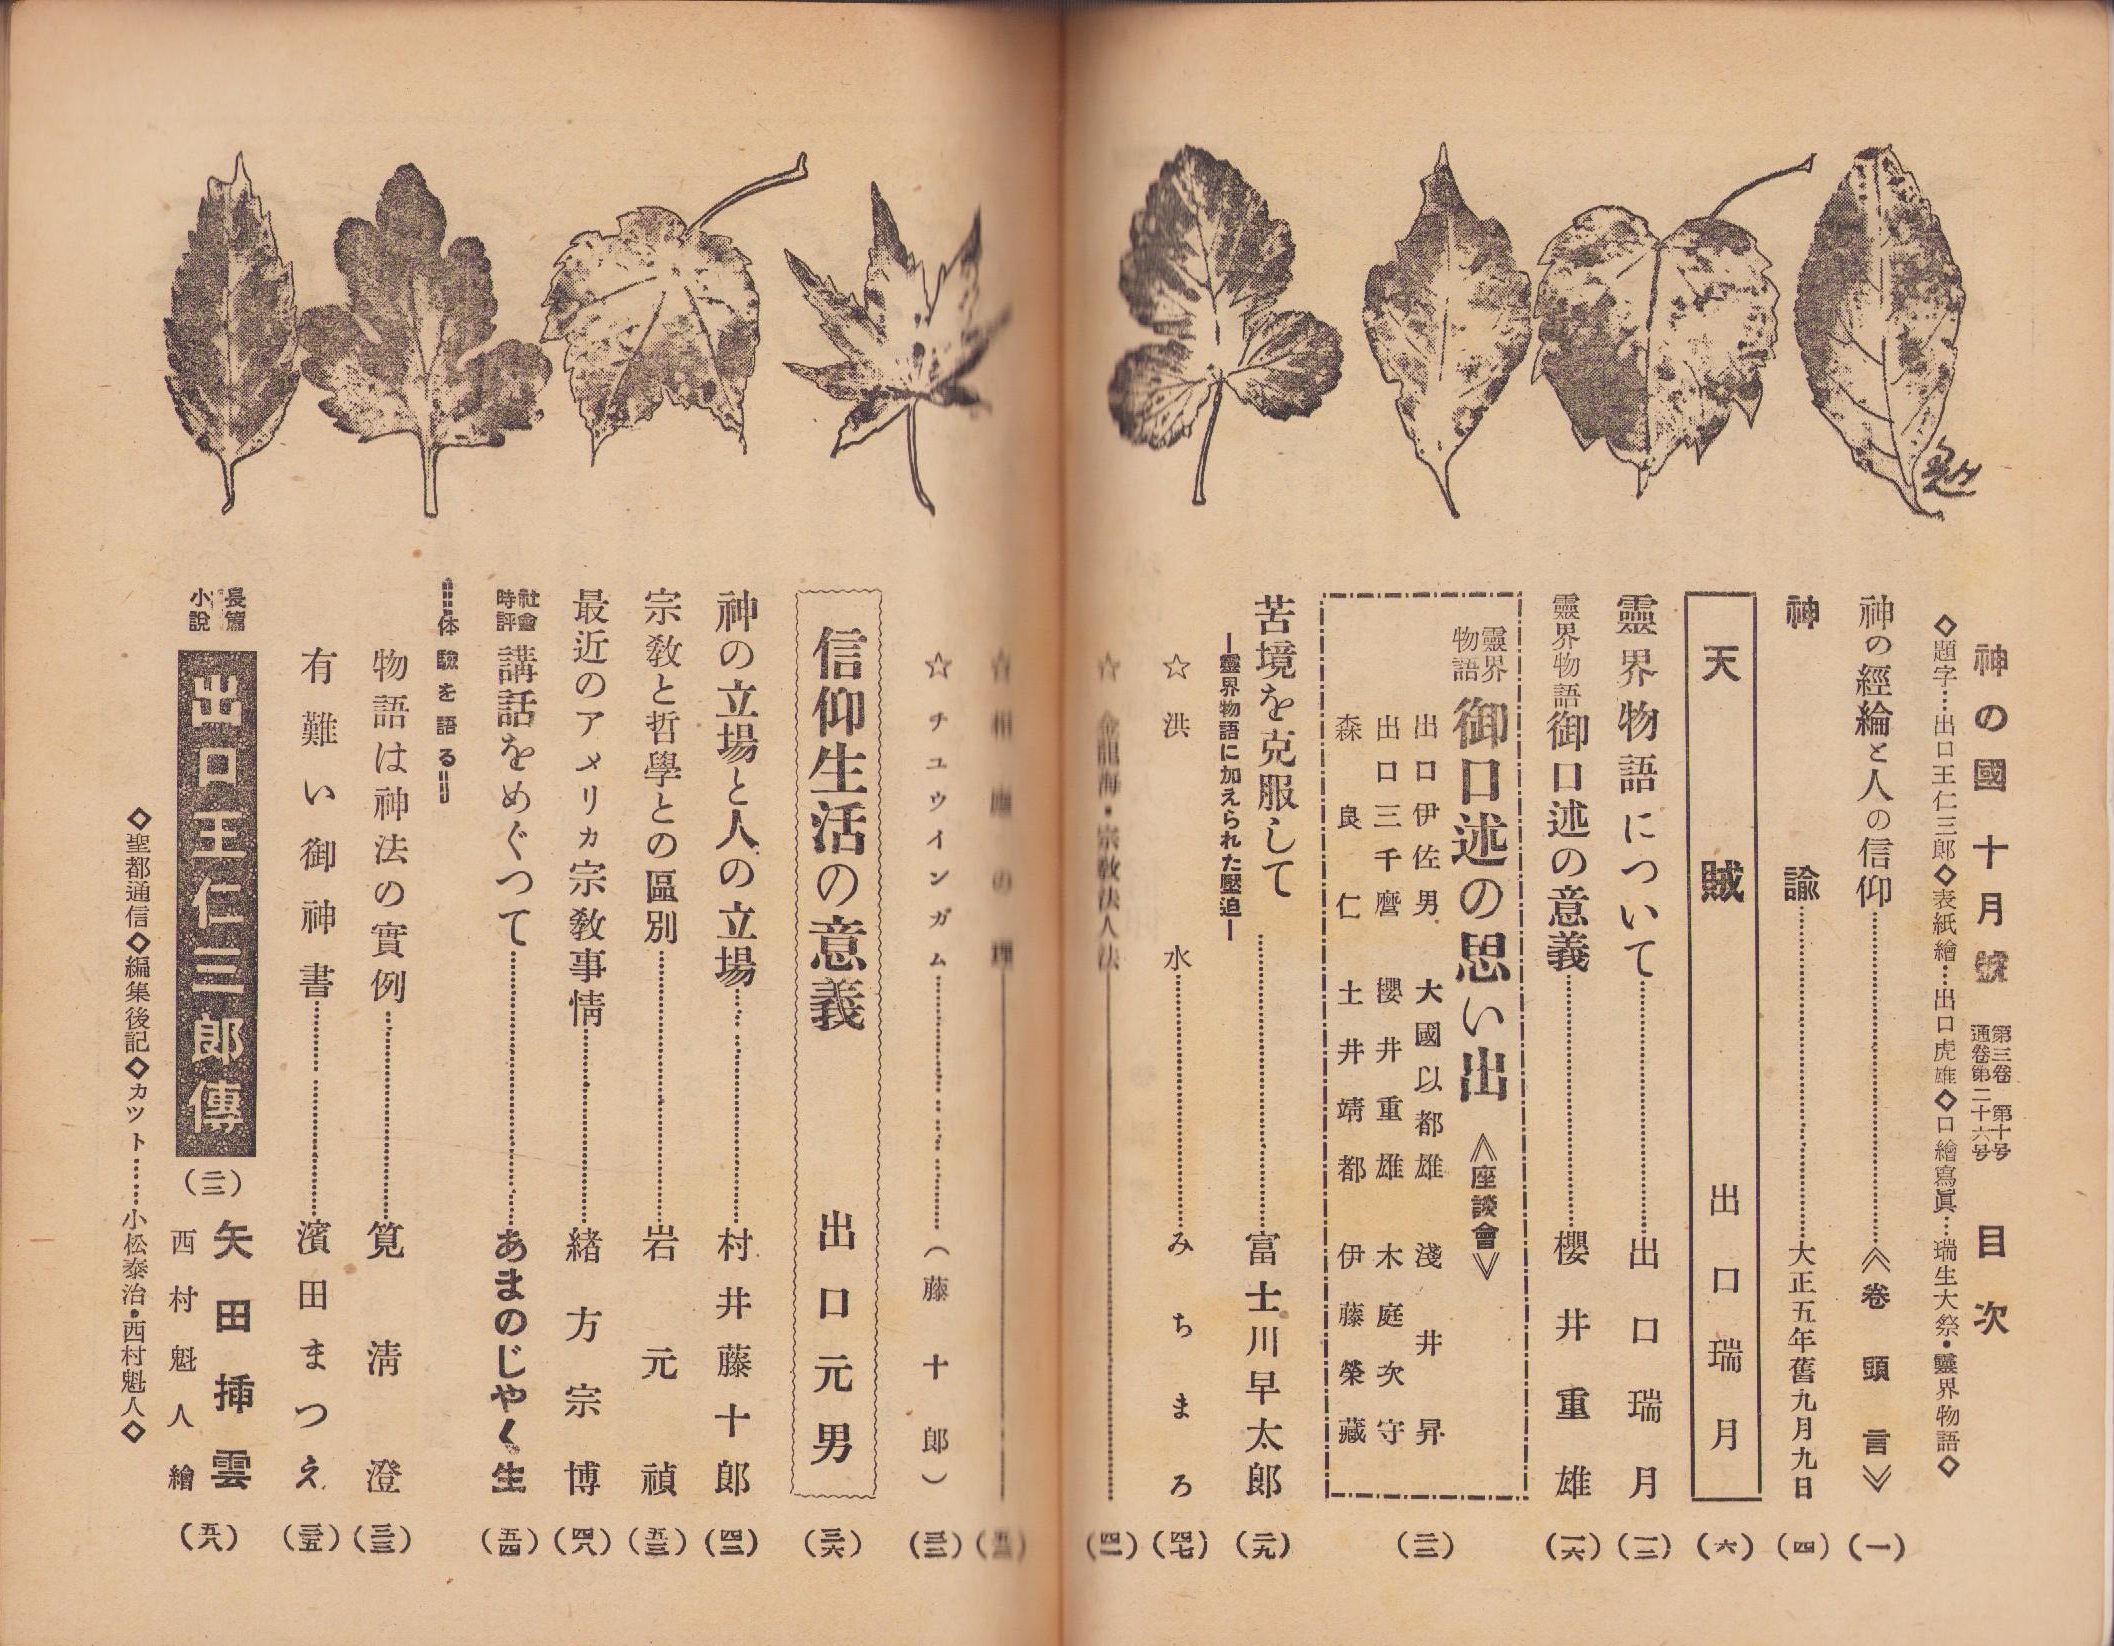 神の國 十月號 第三卷 第十号 通卷第二十六号 目次
◇題字…出口王仁三郎◇表紙繪…出口虎雄◇口繪寫眞…瑞生大祭・靈界物語◇
神の經綸と人の信仰……《卷頭言》(一)
神諭……大正五年舊九月九日(四)
天賊 出口瑞月(六)
靈界物語について……出口瑞月(一二)
靈界物語御口述の意義……櫻井重雄(一六)
靈界物語 御口述の思い出《座談會》(二二)
出口伊佐男 大國以都雄 淺井昇
出口三千麿 櫻井重雄 木庭次守
森良仁 土井靖都 伊藤榮藏
苦境を克服して……富士川早太郎(二九)
―靈界物語に加えられた壓迫―
☆洪水……みちまろ(四七)
☆金龍海・宗教法人法……(四一)
☆相應の理……
☆チユウインガム……(藤十郎)
信仰生活の意義 出口元男(三六)
神の立場と人の立場……村井藤十郎(四二)
宗教と哲學との區別……岩元禎(五三)
最近のアメリカ宗教事情……緒方宗博(四八)
社會時評 講話をめぐつて……あまのじやく生(五四)
=体驗を語る=
物語は神法の實例……筧清澄(三三)
有難い御神書……濱田まつえ(三五)
長篇小說 出口王仁三郎傳(三) 矢田挿雲
西村魁人繪(五六)
◇聖都通信◇編集後記◇カツト……小松泰治・西村魁人◇